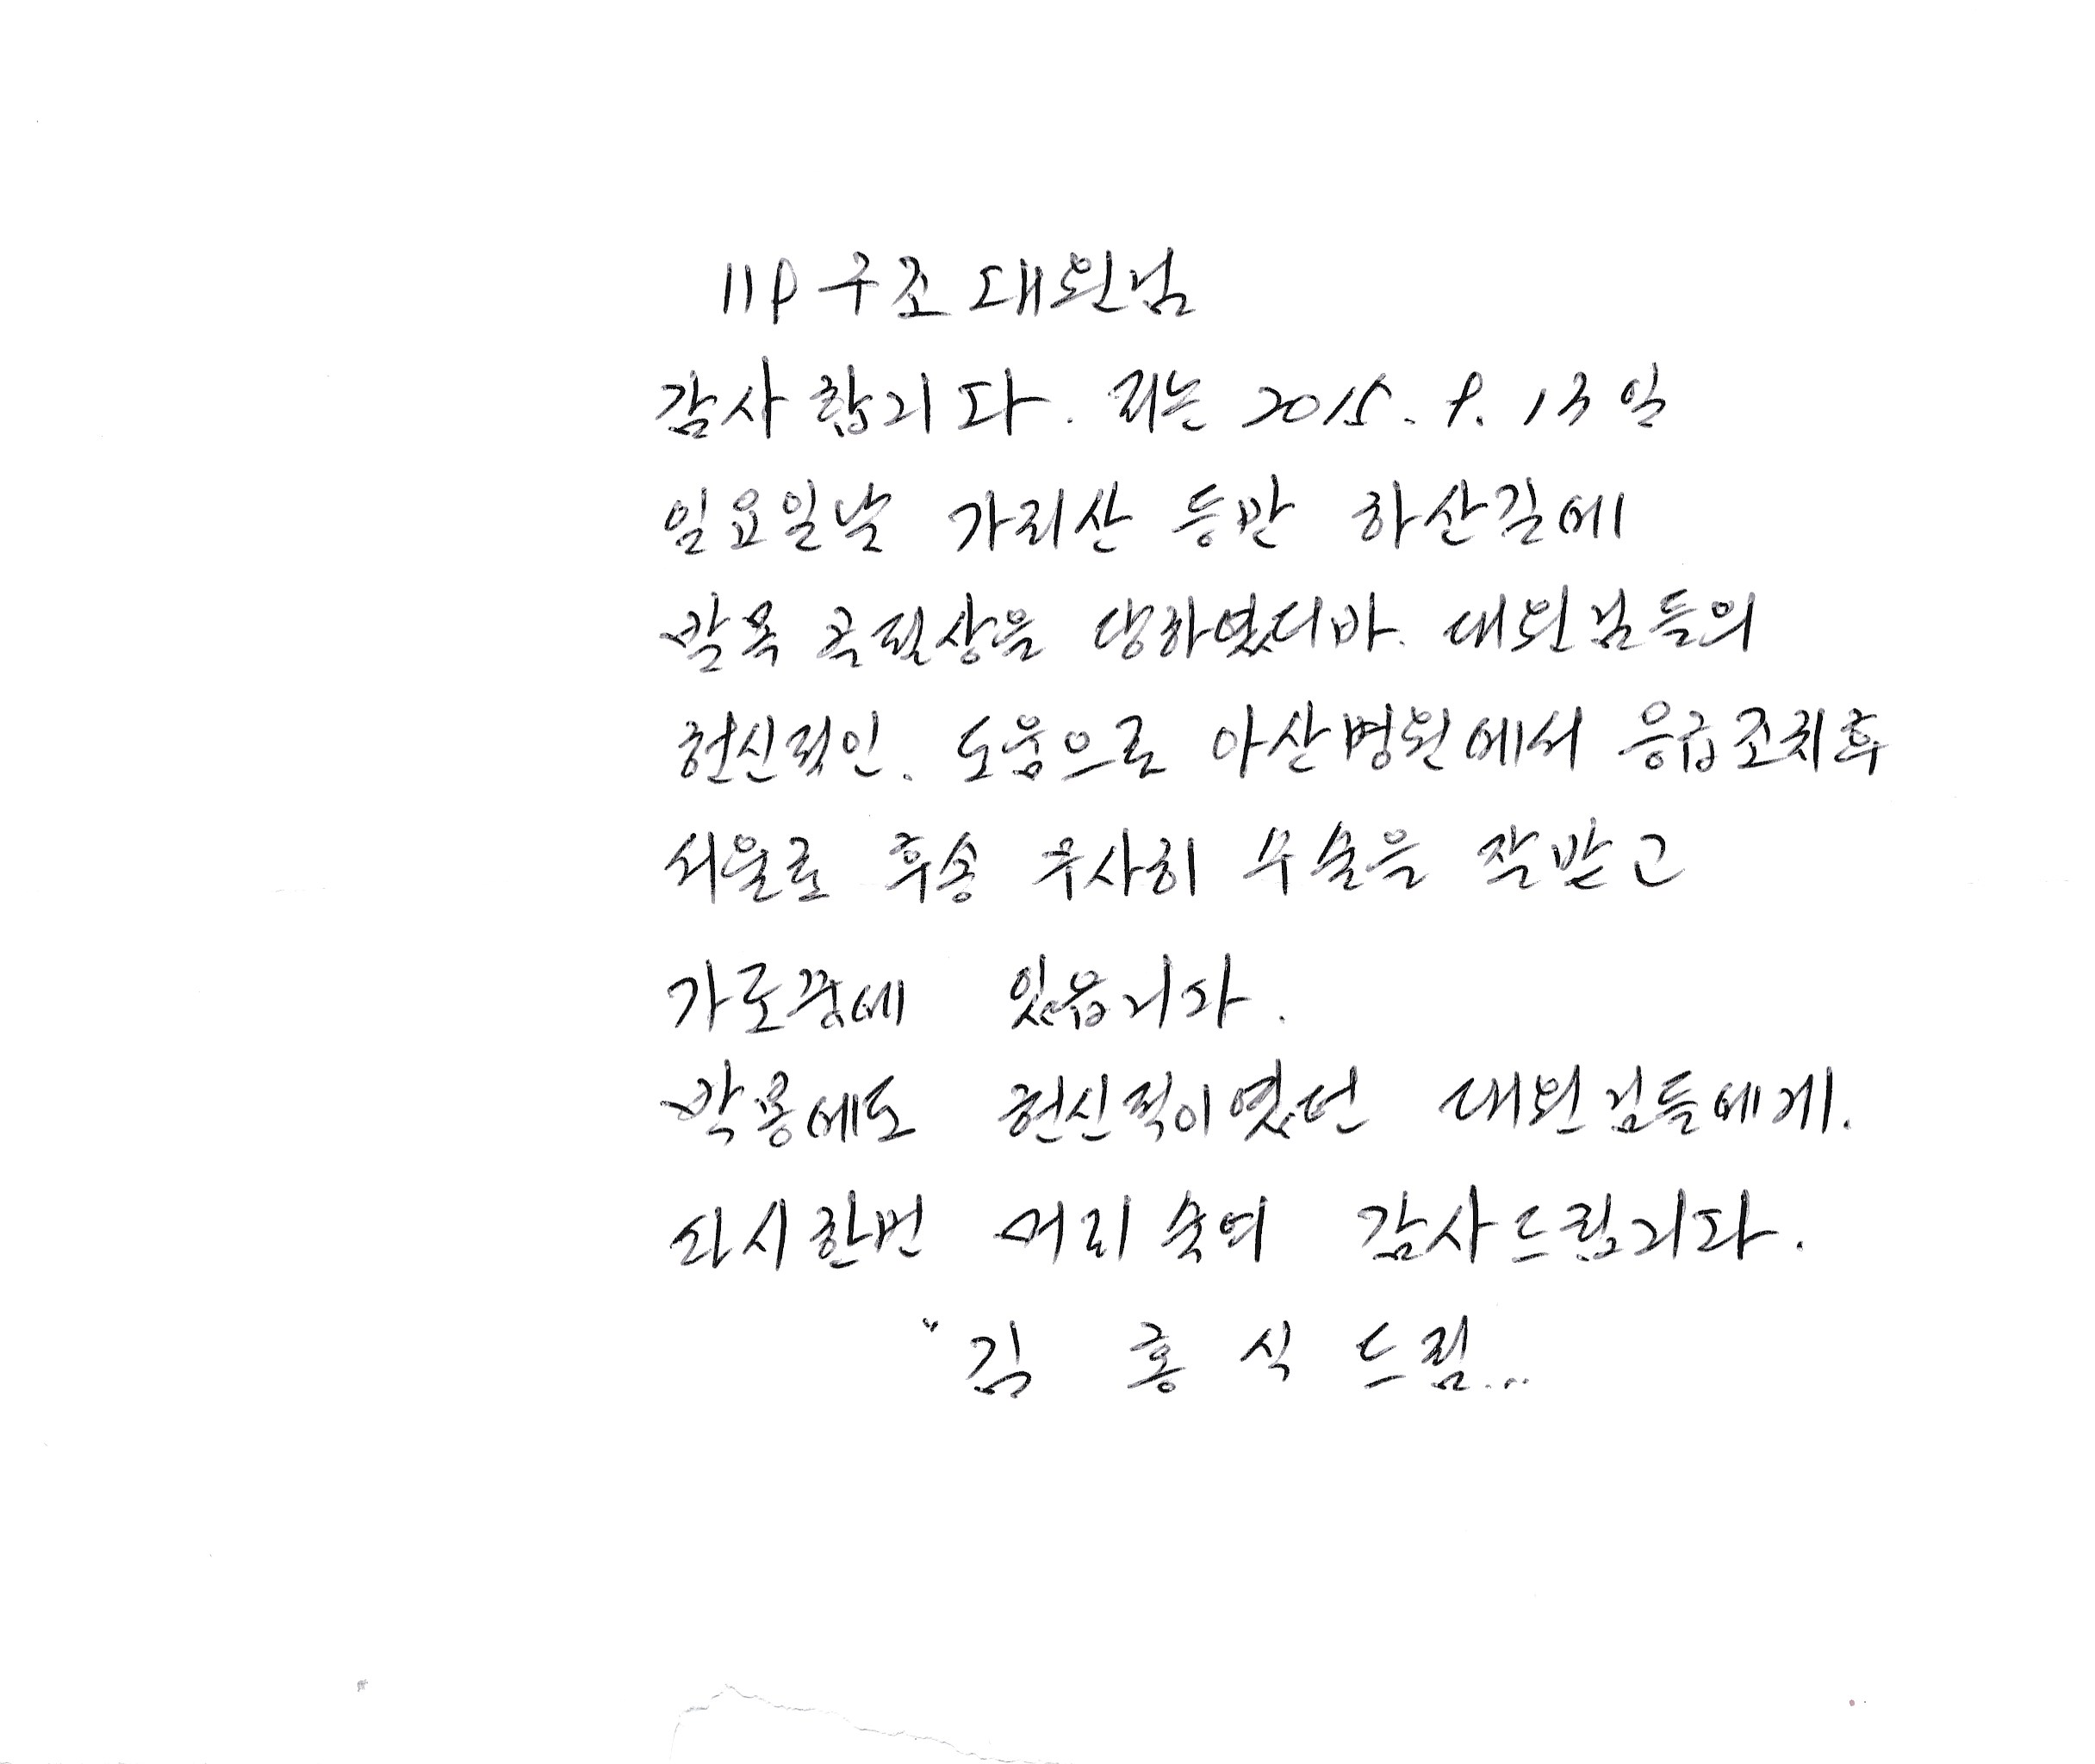 119 구조대원님
감사합니다. 저는 2015. 9. 13일
일요일날 가리산 등반 하산길에
발목 골절상을 당하였던바. 대원님들의
헌신적인. 도움으로 아산병원에서 응급조치후
서울로 후송 무사히 수술을 잘받고
가료중에 있읍니다.
박봉에도 헌신적이였던 대원님들에게.
다시한번 머리숙여 감사드립니다.
"김 홍 식 드림...